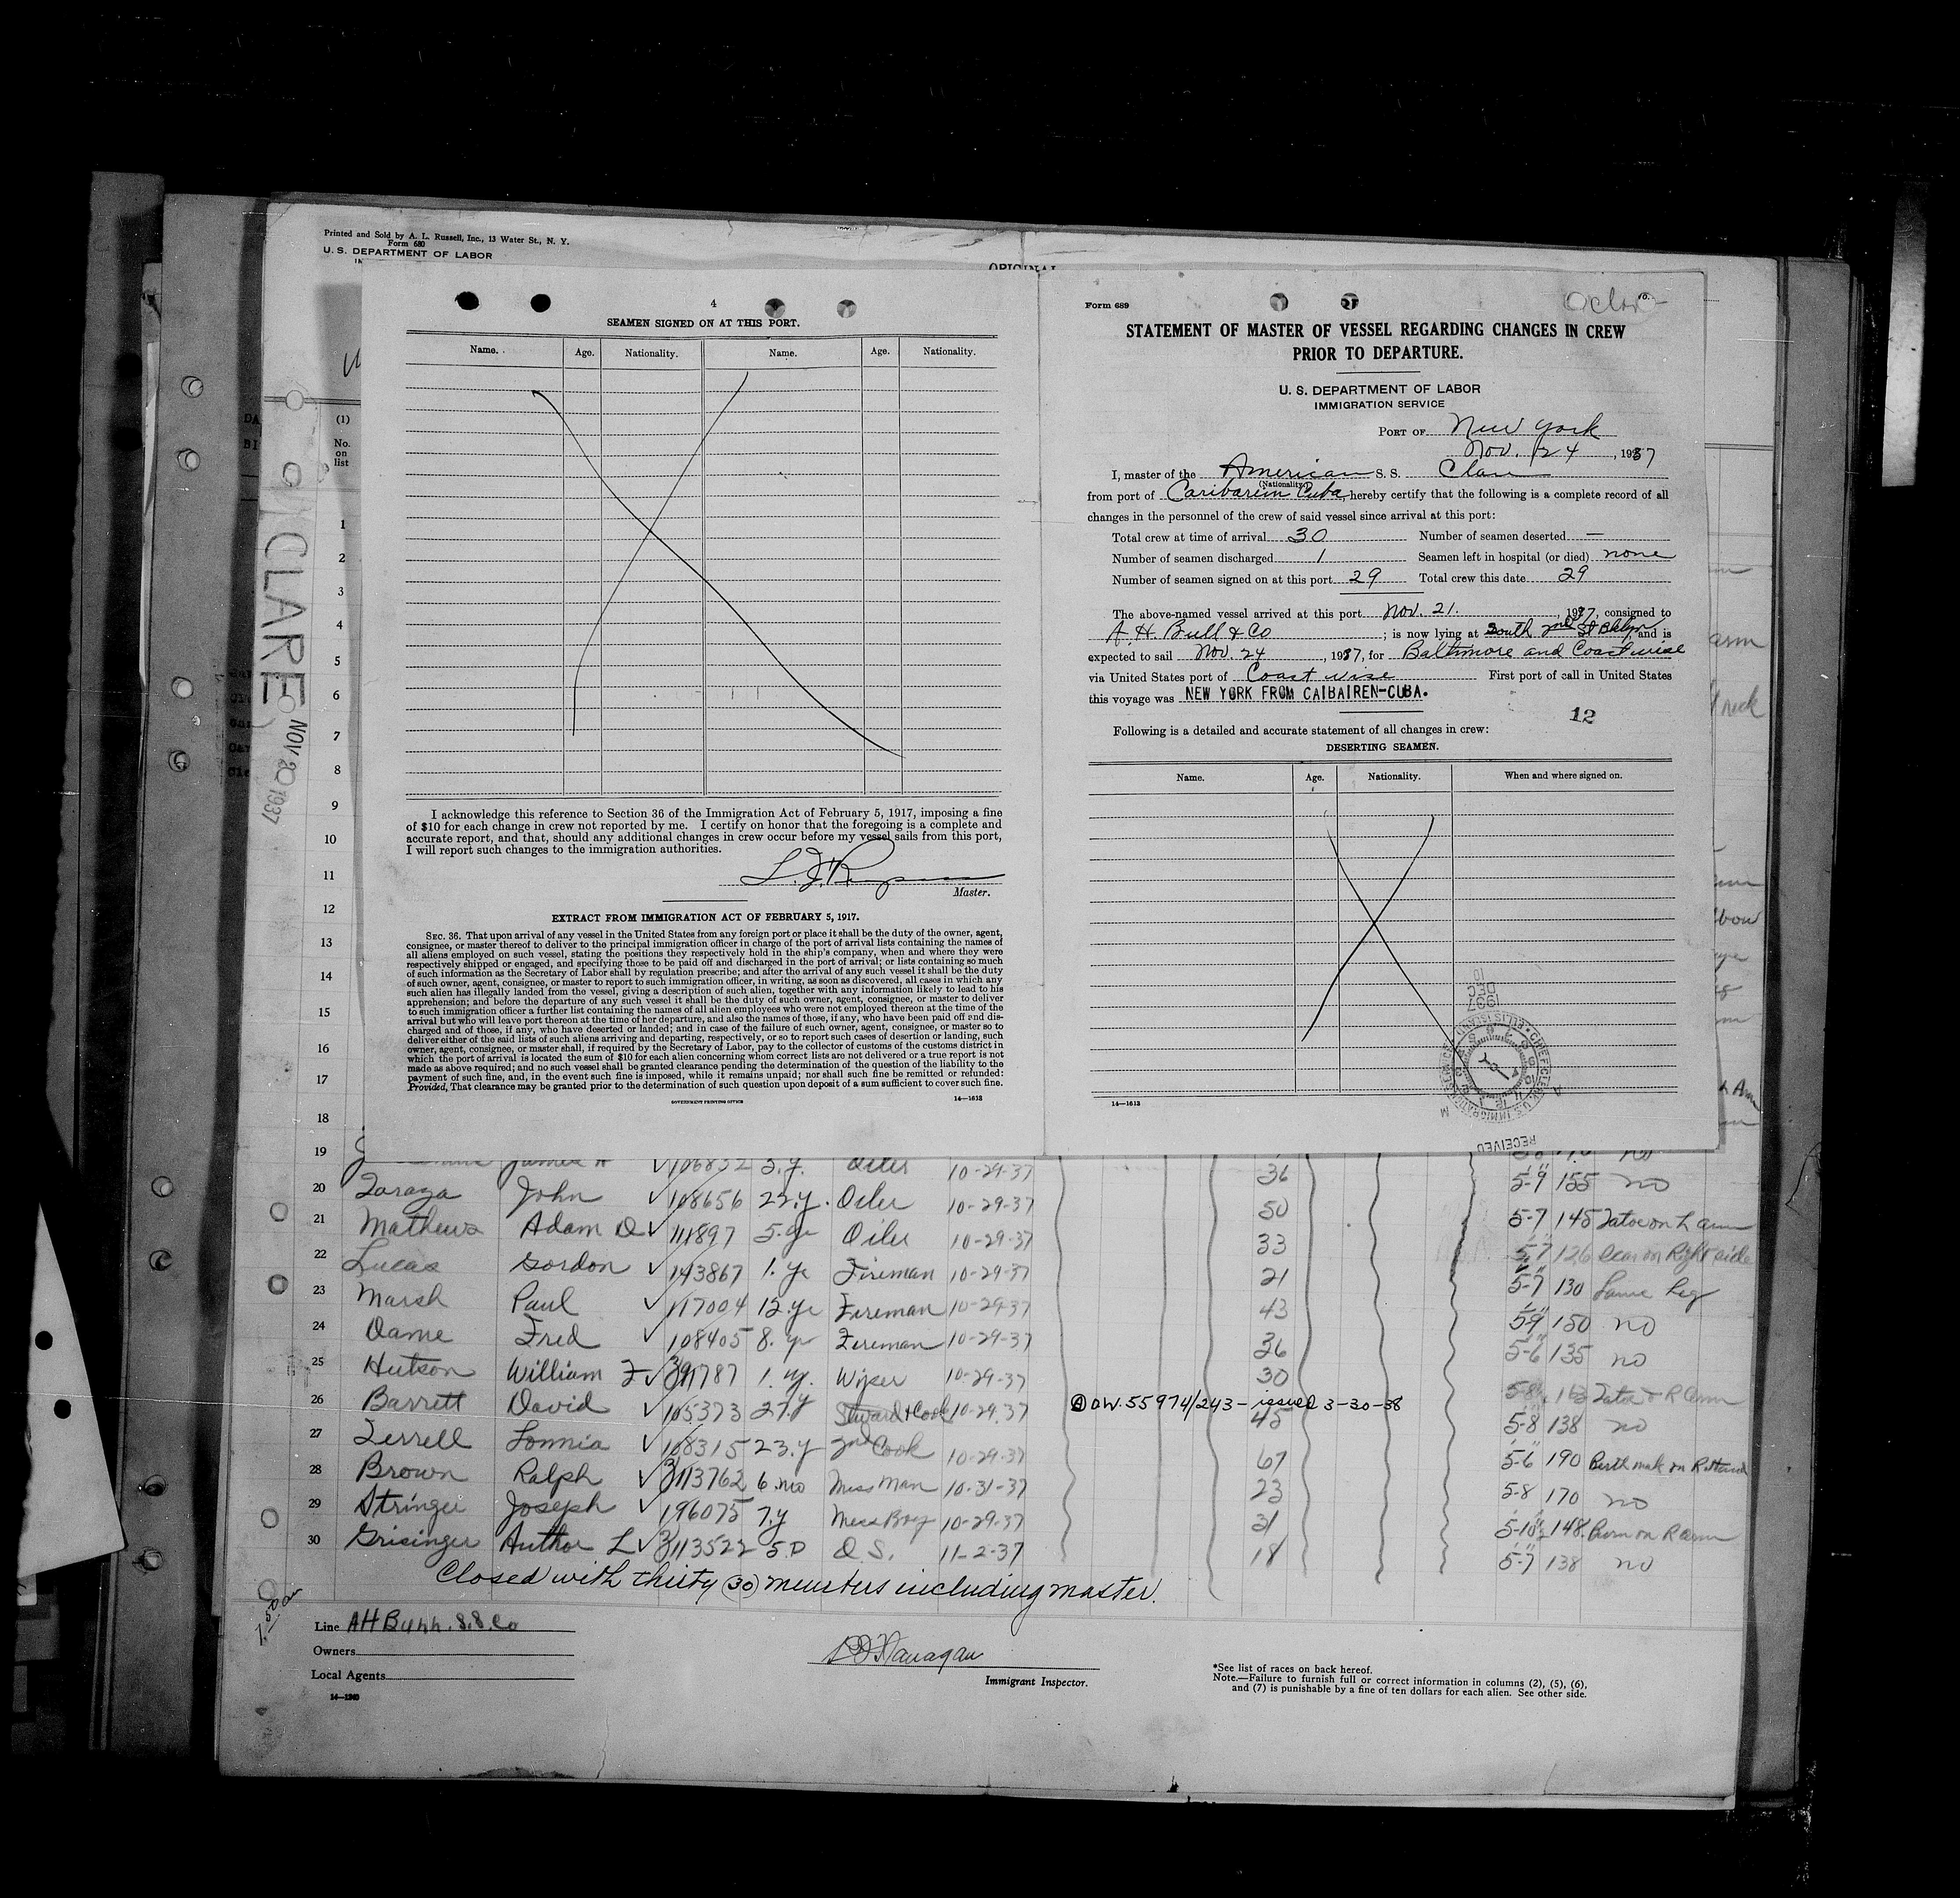 Printed and Sold by A. L. Russell, Inc., 13 Water St., N. Y.
Form 680
U. S. DEPARTMENT OF LABOR
ORIGINAL
(1)
No.
on
list
CLARE
NOV 20 1937
1
2
3
4
5
6
7
8
9
10
11
12
13
14
15
16
17
18
4
SEAMEN SIGNED ON AT THIS PORT.
Name. Age. Nationality. Name. Age. Nationality.
I acknowledge this reference to Section 36 of the Immigration Act of February 5, 1917, imposing a fine
of $10 for each change in crew not reported by me. I certify on honor that the foregoing is a complete and
accurate report, and that, should any additional changes in crew occur before my vessel sails from this port,
I will report such changes to the immigration authorities.
Master.
EXTRACT FROM IMMIGRATION ACT OF FEBRUARY 5, 1917.
SEC. 36. That upon arrival of any vessel in the United States from any foreign port or place it shall be the duty of the owner, agent,
consignee, or master thereof to deliver to the principal immigration officer in charge of the port of arrival lists containing the names of
all aliens employed on such vessel, stating the positions they respectively hold in the ship's company, when and where they were
respectively shipped or engaged, and specifying those to be paid off and discharged in the port of arrival; or lists containing so much
of such information as the Secretary of Labor shall by regulation prescribe; and after the arrival of any such vessel it shall be the duty
of such owner, agent, consignee, or master to report to such immigration officer, in writing, as soon as discovered, all cases in which any
such alien has illegally landed from the vessel, giving a description of such alien, together with any information likely to lead to his
apprehension; and before the departure of any such vessel it shall be the duty of such owner, agent, consignee, or master to deliver
to such immigration officer a further list containing the names of all alien employees who were not employed thereon at the time of the
arrival but who will leave port thereon at the time of her departure, and also the names of those, if any, who have been paid off and dis-
charged and of those, if any, who have deserted or landed; and in case of the failure of such owner, agent, consignee, or master so to
deliver either of the said lists of such aliens arriving and departing, respectively, or so to report such cases of desertion or landing, such
owner, agent, consignee, or master shall, if required by the Secretary of Labor, pay to the collector of customs of the customs district in
which the port of arrival is located the sum of $10 for each alien concerning whom correct lists are not delivered or a true report is not
made as above required; and no such vessel shall be granted clearance pending the determination of the question of the liability to the
payment of such fine, and, in the event such fine is imposed, while it remains unpaid; nor shall such fine be remitted or refunded:
Provided, That clearance may be granted prior to the determination of such question upon deposit of a sum sufficient to cover such fine.
GOVERNMENT PRINTING OFFICE 14—1613
Form 689
STATEMENT OF MASTER OF VESSEL REGARDING CHANGES IN CREW
PRIOR TO DEPARTURE.
U. S. DEPARTMENT OF LABOR
IMMIGRATION SERVICE
PORT OF New York
Nov. 24, 1937
I, master of the American S. S. Clare
(Nationality.)
from port of Caribarien Cuba, hereby certify that the following is a complete record of all
changes in the personnel of the crew of said vessel since arrival at this port:
Total crew at time of arrival 30 Number of seamen deserted —
Number of seamen discharged 1 Seamen left in hospital (or died) none
Number of seamen signed on at this port 29 Total crew this date 29
The above-named vessel arrived at this port Nov. 21., 1937, consigned to
A. H. Bull & Co; is now lying at South 2nd St Bklyn, and is
expected to sail Nov. 24, 1937, for Baltimore and Coastwise
via United States port of Coast wise First port of call in United States
this voyage was NEW YORK FROM CAIBAIREN-CUBA.
12
Following is a detailed and accurate statement of all changes in crew:
DESERTING SEAMEN.
Name. Age. Nationality. When and where signed on.
1937 DEC 10
CHIEF CLERK, U.S. IMMIGRATION SERVICE • ELLIS ISLAND
RECEIVED
14—1613
19 James 106832 10-29-37 36
20 John 108656 22.y. Oiler 10-29-37 50 5-9 155 no
21 Mathews Adam D 111897 5.yr Oiler 10-29-37 33 5-7 145 Tatoo on L arm
22 Lucas Gordon 143867 1.yr Fireman 10-29-37 21 5-7 126 Scar on Right side
23 Marsh Paul 117004 12.yr Fireman 10-29-37 43 5-7 130 Lame Leg
24 Dame Fred 108405 8.yr Fireman 10-29-37 36 5-9 150 no
25 Hutson William F 1.yr. Wiper 10-29-37 30 5-6 135 no
26 Barrett David 105373 27.y Steward & Cook 10-29-37 DW. 55974/243 - issued 3-30-38 45
27 Terrell Lonnia 108315 23.y 2nd Cook 10-29-37 67 5-8 138 no
28 Brown Ralph 113762 6.mo Mess Man 10-31-37 23 5-6 190
29 Stringer Joseph 196075 7.y Mess Boy 10-29-37 31 5-8 170 no
30 Grisinger Arthor L 113522 5.D O.S. 11-2-37 18 5-10½ 148. Burn on R arm
5-7 138 no
Closed with thirty (30) munsters including master.
Line A H Bull. S.S. Co
Owners
Local Agents
14—1240
Immigrant Inspector.
*See list of races on back hereof.
Note.—Failure to furnish full or correct information in columns (2), (5), (6),
and (7) is punishable by a fine of ten dollars for each alien. See other side.